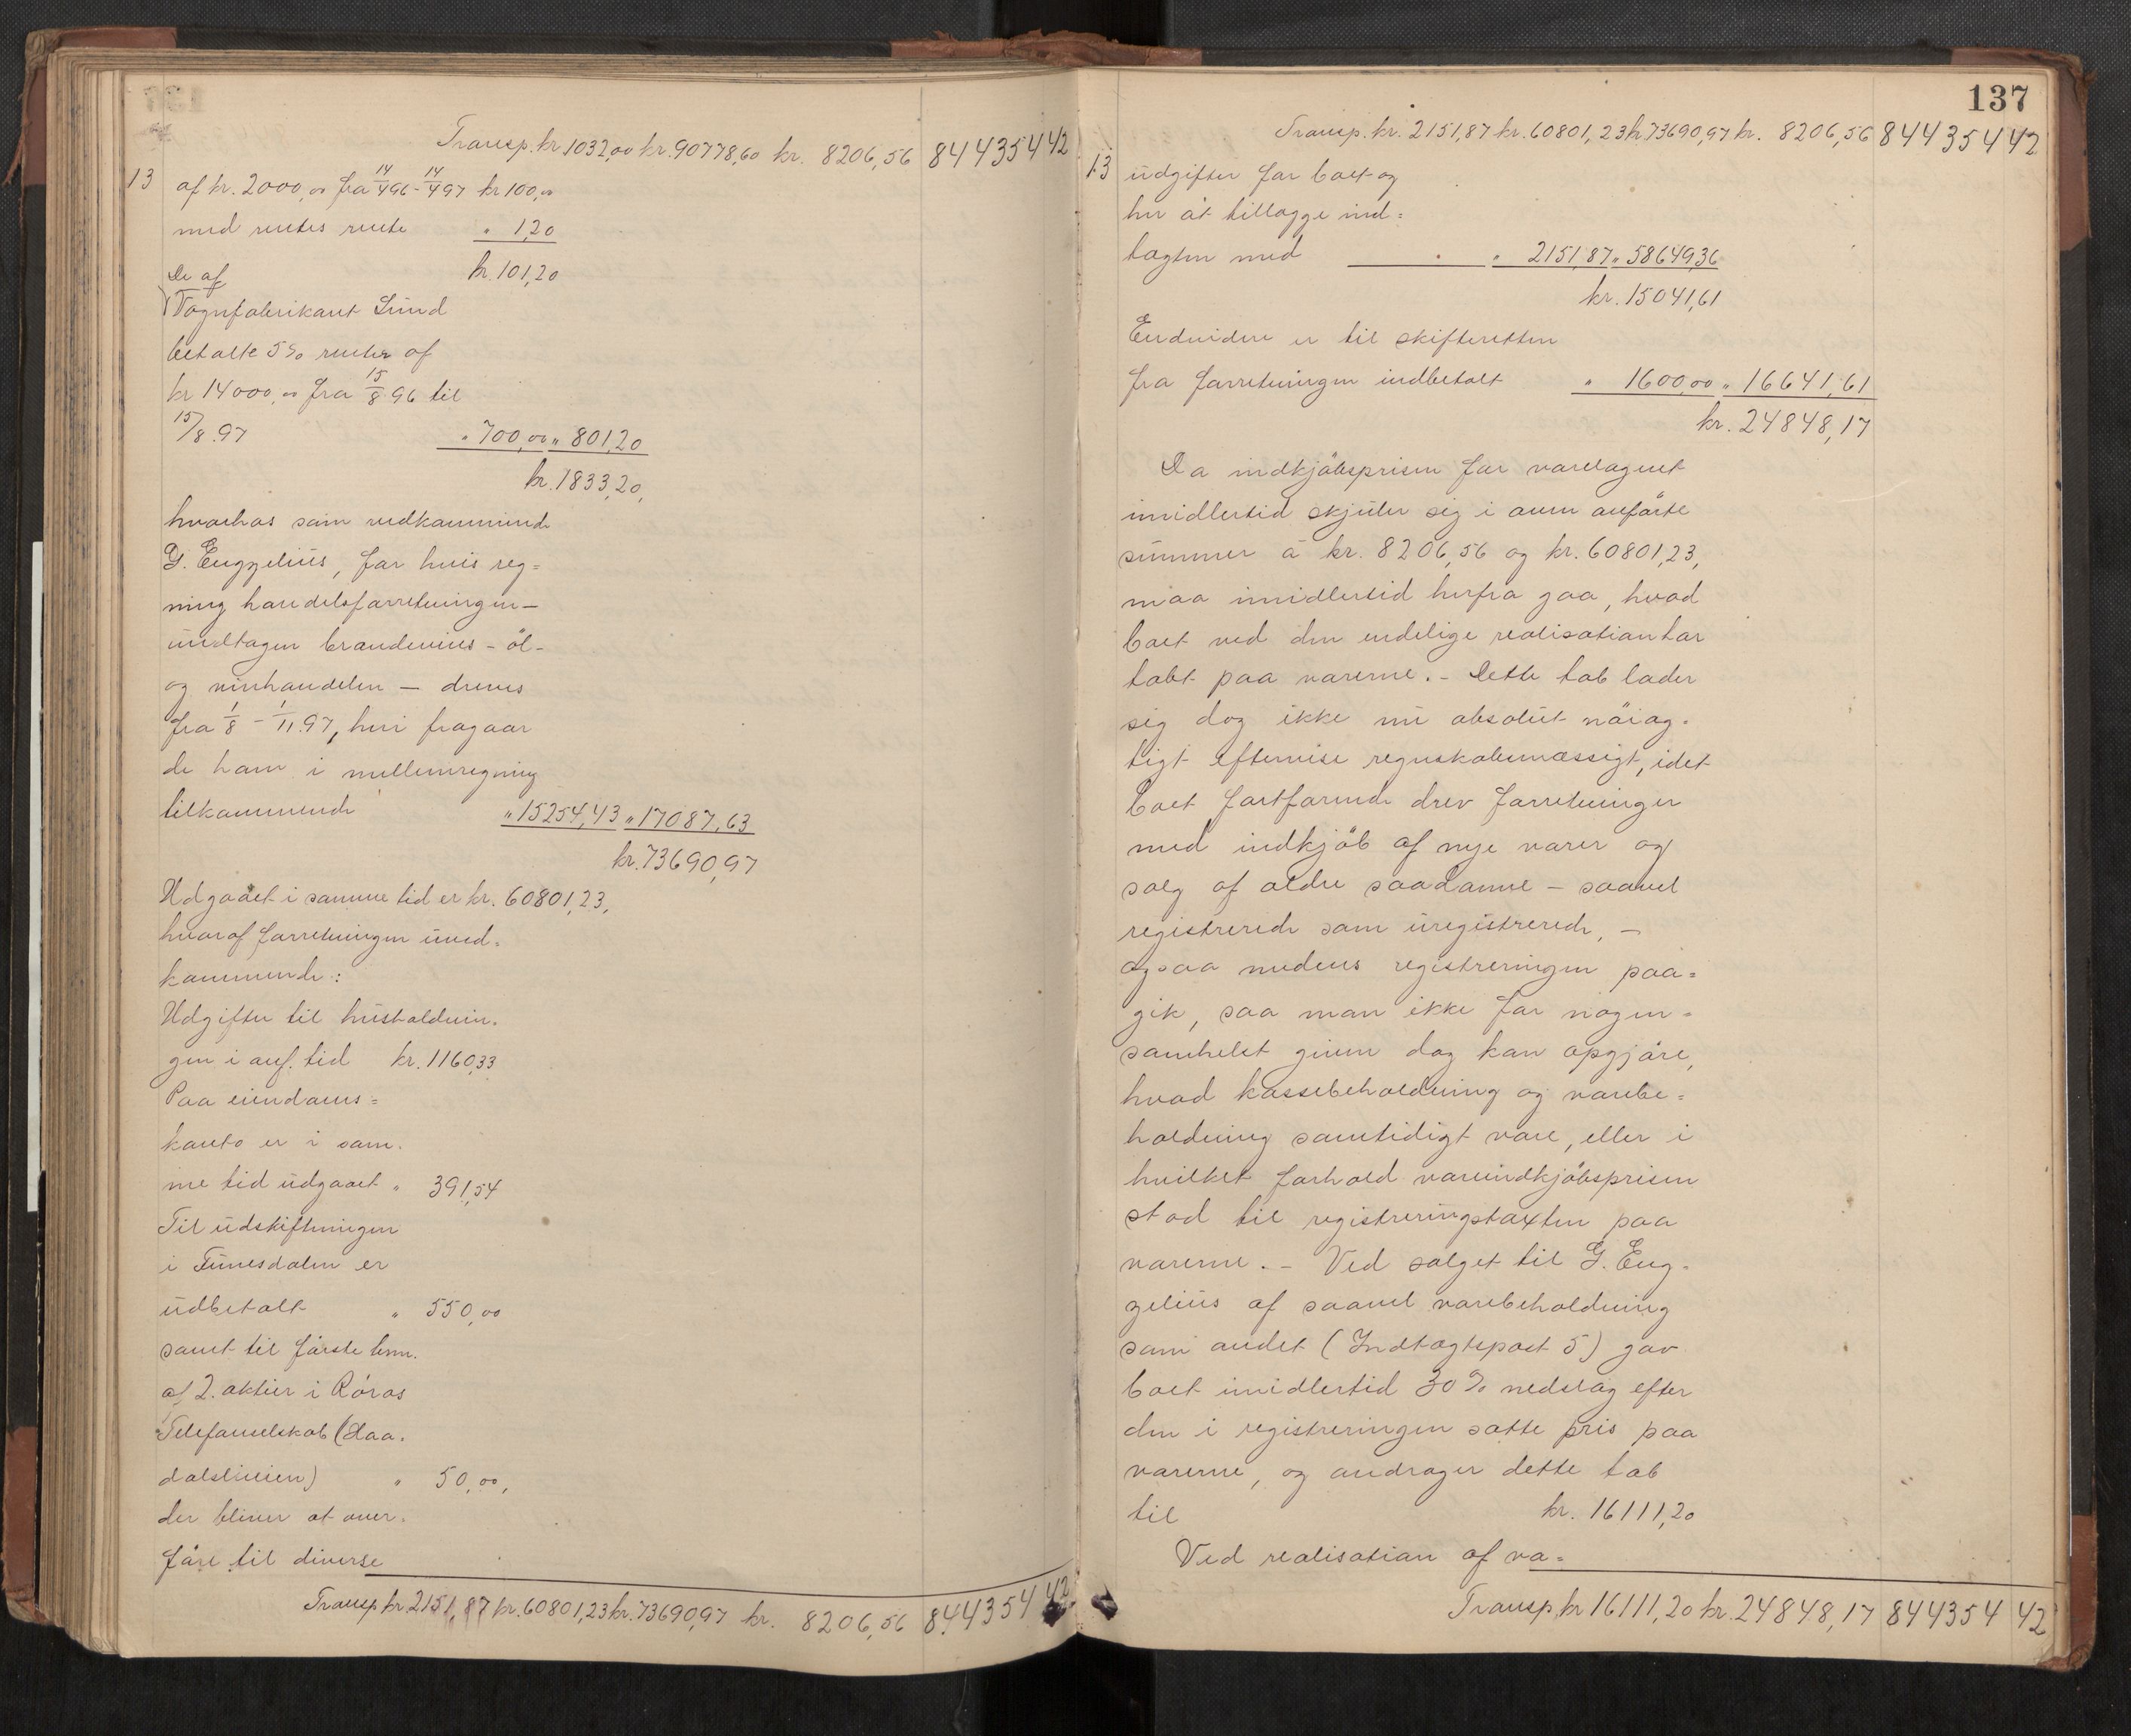 Transp. kr. 1032,00 kr. 90778,60 kr. 8206,56 844354 42
13 af kr. 2000,00 fra 14/4 96 - 14/4 97 kr 100,00
med rentes rente " 1,20
kr. 101,20
De af
Vognfabrikant Lund
betalte 5% renter af
kr 14000,00 fra 15/8 96 til
15/8. 97 " 700,00 " 801,20
kr. 1833,20,
hvorhos som vedkommende
G. Engzelius, for hvis reg=
ning handelsforretningen –
undtagen brændevins - öl -
og vinhandelen – dreves
fra 1/8 - 1/11. 97, heri fragaar
de ham i mellemregning
tilkommende " 15254,43 " 17087,63
kr. 73690,97
Udgaaet i samme tid er kr. 60801,23,
hvoraf forretningen uved=
kommende:
Udgifter til husholdnin=
gen i anf. tid kr. 1160,33
Paa eiendoms=
konto er i sam=
me tid udgaaet " 391,54
Til udskiftningen
i Tunesdalen er
udbetalt " 550,00
samt til förste term.
af 2. aktier i Röros
Telefonselskab (Haa=
dalslinien) " 50,00,
der bliver at over=
före til diverse
Transp kr 2151,87 kr. 60801,23 kr. 73690,97 kr. 8206,56 844354 42
137
Transp. kr. 2151,87 kr. 60801,23 kr 73690,97 kr. 8206,56 844354 42
13 udgifter for boet og
her at tillægge ind=
tægten med " 2151,87 " 58649,36
kr. 15041,61
Endvidere er til skifteretten
fra forretningen indbetalt " 1600,00 " 16641,61
kr. 24848,17
Da indkjöbsprisen for varelageret
imidlertid skjuler sig i oven anförte
summer á kr. 8206,56 og kr. 60801,23,
maa imidlertid herfra gaa, hvad
boet ved den endelige realisation har
tabt paa varerne. - Dette tab lader
sig dog ikke nu absolut nöiag=
tigt eftervise regnskabsmæssigt, idet
boet fortfarende drev forretninger
med indkjöb af nye varer og
salg af ældre saadanne – saavel
registrerede som uregistrerede, –
ogsaa medens registreringen paa=
gik, saa man ikke for nogen=
somhelst given dag kan opgjöre,
hvad kassebeholdning og varebe=
holdning samtidigt vare, eller i
hvilket forhold vareindkjöbsprisen
stod til registreringstaxten paa
varerne. - Ved salget til G. Eng=
zelius af saavel varebeholdning
som andet (Indtægtspost 5) gav
boet imidlertid 30% nedslag efter
den i registreringen satte pris paa
varerne, og andrager dette tab
til kr. 16111,20
Ved realisation af va=
Transp kr 16111,20 kr. 24848,17 844354 42